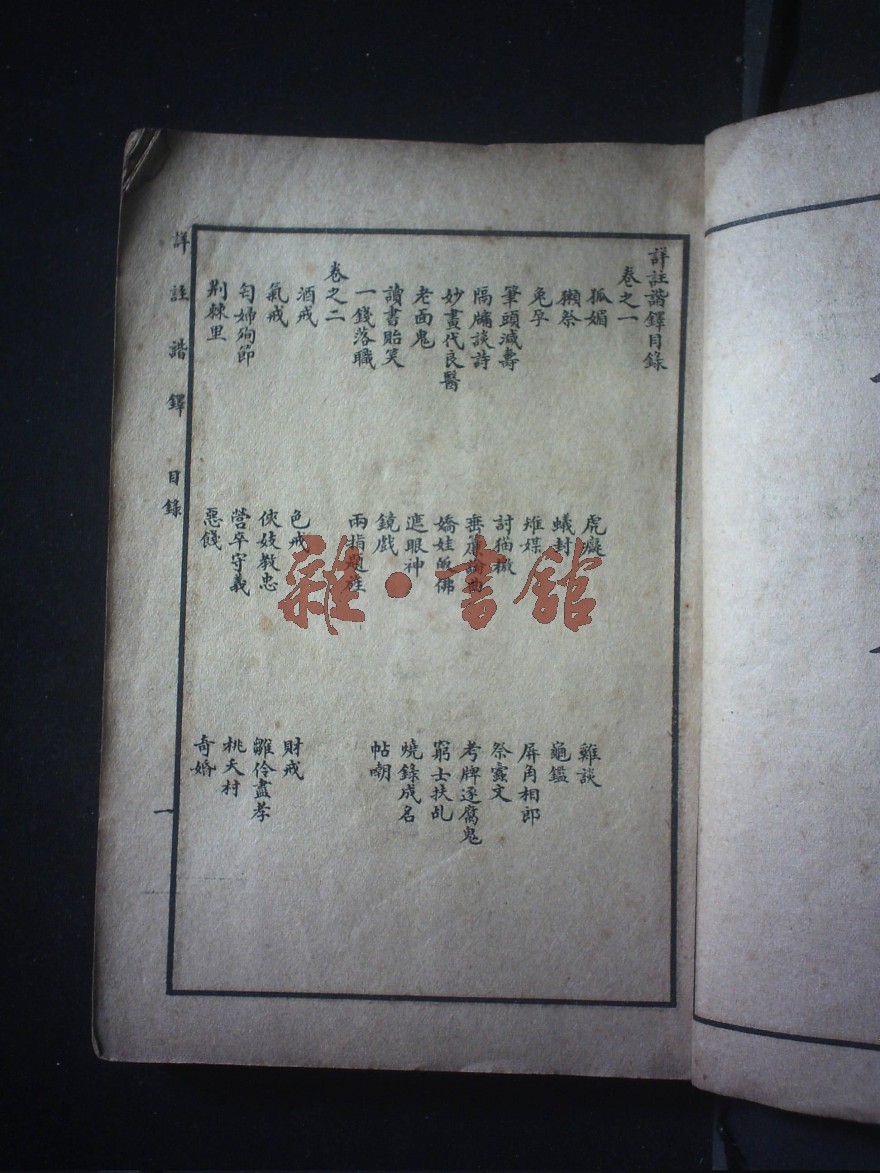 詳註諧鐸目錄
卷之一
狐媚 虎癡 雞談
獺祭 蟻封 龜鑑
兔孕 雉媒 屏角相郎
筆頭減壽 討猫檄 祭蠹文
隔牖談詩 垂簾論曲 考牌逐腐鬼
妙畫代良醫 嬌娃皈佛 窮士扶乩
老面鬼 遮眼神 燒錄成名
讀書貽笑 鏡戲 帖嘲
一錢落職 兩指題旌
卷之二
酒戒 色戒 財戒
氣戒 俠妓教忠 雛伶盡孝
匄婦殉節 營卒守義 桃夭村
荆棘里 惡餞 奇婚
詳註諧鐸 目錄 一
雜·書館